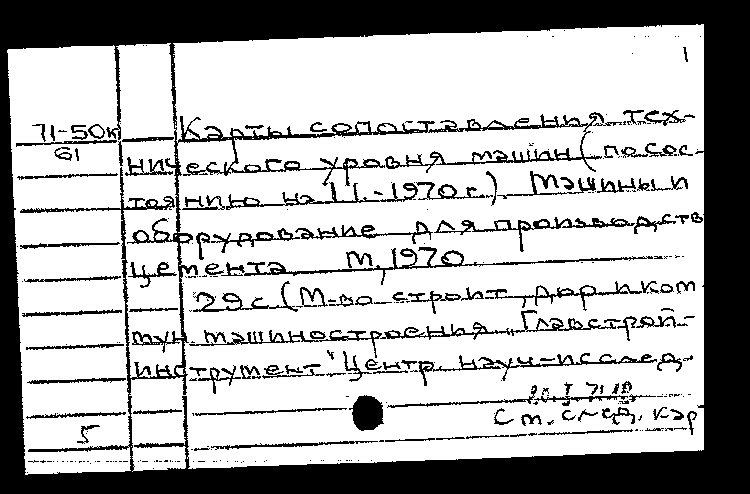 1
71-50к Карты сопоставления тех-
61 нического уровня машин (по сос-
тоянию на 1 I.-1970 г.). Машины и
оборудование для производств
цемента. М, 1970.
29 с (М-во строит, дор и ком
мун. машиностроения „Главстрой-
инструмент" Центр. науч-исслед.
20. I. 71
См. след. кар
5